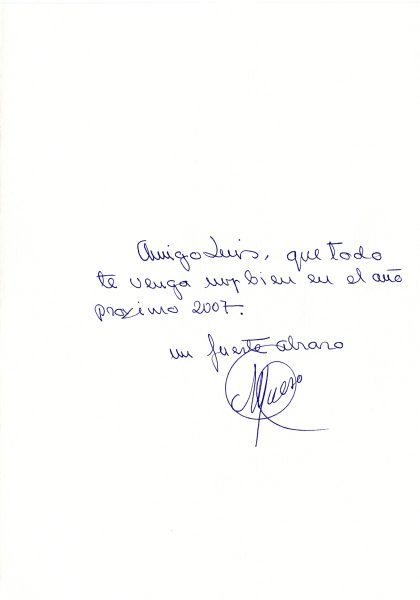 Amigo Luis, que todo
te venga muy bien en el año
proximo 2007.
un fuerte abrazo